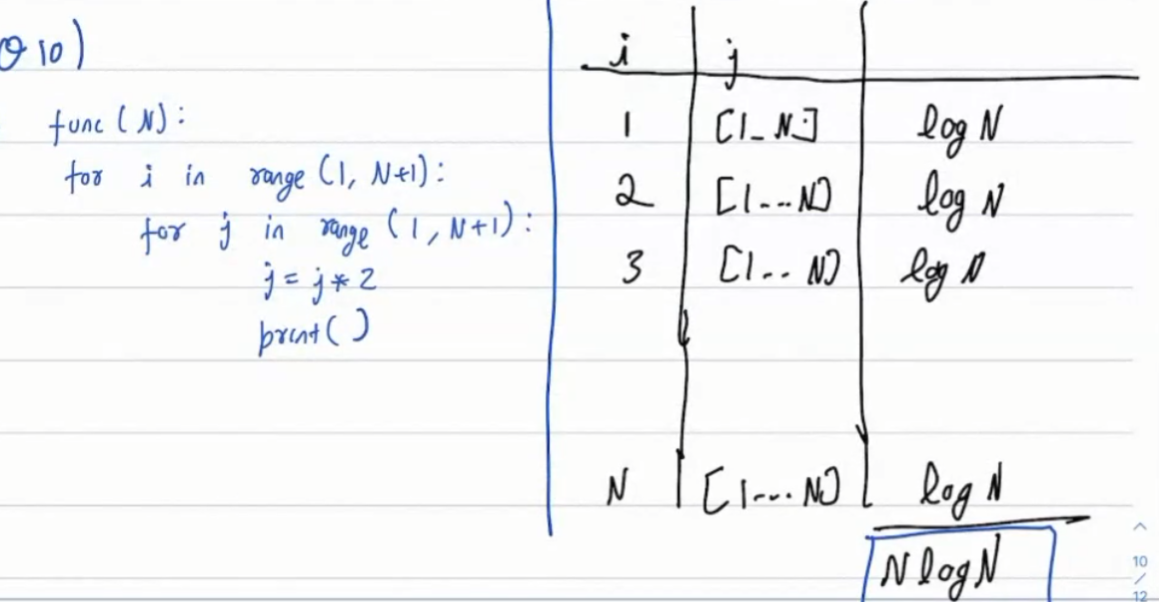 Q 10)
func (N):
for i in range (1, N+1):
for j in range (1, N+1):
j = j * 2
print( )
i j
1 [1_N] log N
2 [1---N] log N
3 [1-- N] log N
N [1---N] log N
N log N
10
/
12